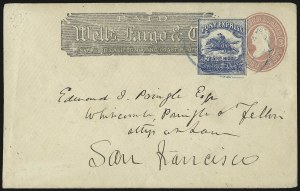 PAID
Wells, Fargo & C
PONY EXPRESS
Edmund J. Pringle Esqr
Whitcomb, Pringle & Felton
attys at Law
San Francisco